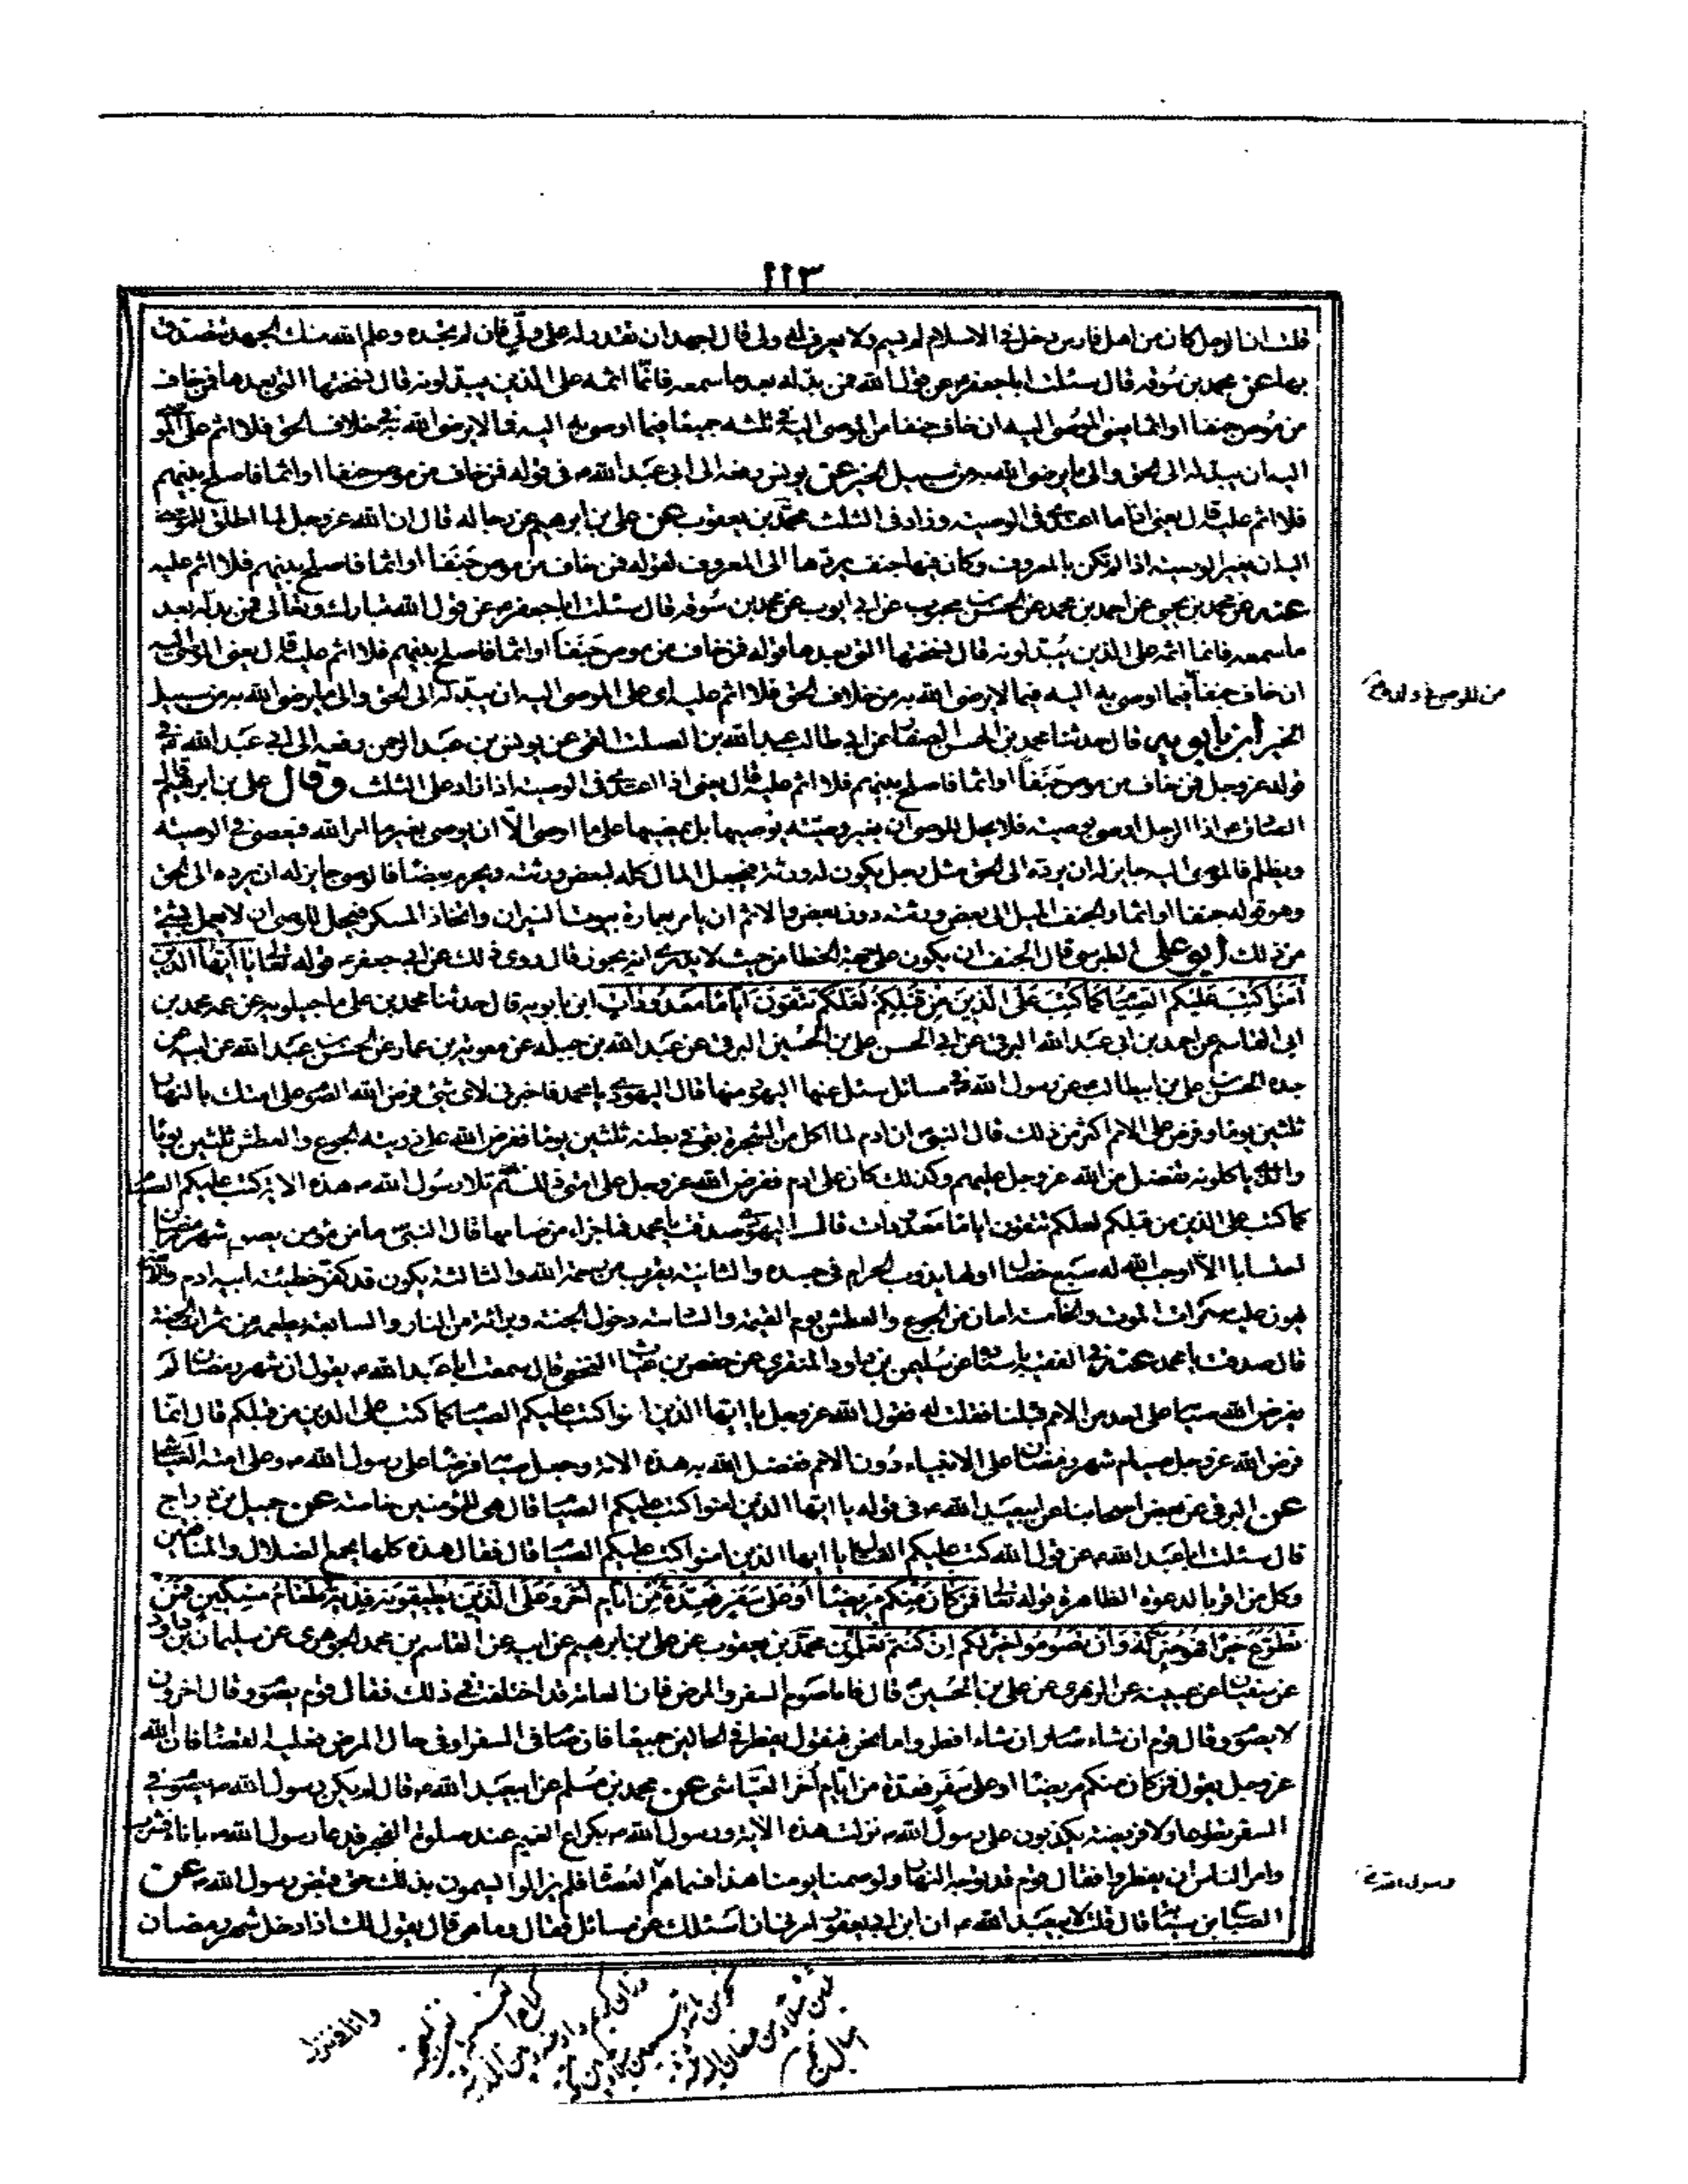 ١١٣
قلت انا رجل كان من اهل فارس دخل في الاسلام لم يسم ولا يعرف له ولى قال اجهد ان تقدر له على ولّي فان لم تجده وعلم الله منك الجهد تتصدق
بها عن محمد بن سوقه قال سئلت اباجعفر عن قول الله فمن بدله بعد ما سمعه فانّما اثمه على الذين يبدلونه قال نسختها التى بعدها فمن خاف
من موص جنفا او اثما يعنى الموصى اليه ان خاف جنفا من الموصى اليه في ثلثه جميعا فيما اوصى به اليه فيما لايرضى الله به في خلاف الحق فلا اثم على الموصى
اليه ان يبدله الى الحق والى ما يرضى الله به من سبيل الخير عن يونس رفعه الى ابى عبد الله ع في قوله فمن خاف من موص جنفا او اثما فاصلح بينهم
فلا اثم عليه قال يعنى اذا ما اعتدى فى الوصيه وزاد فى الثلث محمّد بن يعقوب عن على بن ابرهيم عن رجاله قال ان الله عز وجل اطلق للموصى
اليه ان يغير الوصيه اذا لم تكن بالمعروف وكان فيها جنف يردها الى المعروف لقوله فمن خاف من موص جَنَفاً او اثما فاصلح بينهم فلا اثم عليه
عنه عن محمد بن يحيى عن احمد بن محمد عن الحسن بن محبوب عن ابى ايوب عن محمد بن سُوقه قال سئلت اباجعفر ع عن قول الله تبارك وتعالى فمن بدله بعد
ما سمعه فانما اثمه على الذين يُبدلونه قال نسختها التى بعدها قوله فمن خاف من موص جَنَفاً او اثما فاصلح بينهم فلا اثم عليه قال يعنى الموصى اليه
ان خاف جنفاً فيما اوصى به اليه فيما لايرضى الله به من خلاف الحق فلا اثم عليه اى على الموصى اليه ان يبدله الى الحق والى ما يرضى الله به من سبيل
الخير ابن بابويه قال حدثنا محمد بن الحسن الصفار عن ابى طالب عبد الله بن الصلت القمى عن يونس بن عبد الرحمن رفعه الى ابى عبد الله في
قوله عز وجل فمن خاف من موص جَنَفاً او اثما فاصلح بينهم فلا اثم عليه قال يعنى اذا اعتدى فى الوصيه اذا زاد على الثلث وقال على بن ابرهيم قال
الصادق ع اذا الرجل اوصى بوصيه فلا يحل للوصى ان يغير وصيته يوصيها بل يمضيها على ما اوصى الاّ ان يوصى بغير ما امر الله فيعصى في الوصيه
ويظلم فالموصى اليه جايز له ان يرده الى الحق مثل رجل يكون له ورثة فيجعل المال كله لبعض ورثته ويحرم بعضا فالوصى جايز له ان يرده الى الحق
وهو قوله جنفا او اثما والجنف الميل الى بعض ورثته دون بعض والاثم ان يامر بعمارة بيوت النيران واتخاذ المسكر فيحل للوصى ان لا يعمل بشئ
من ذلك ابو على الطبرسى قال الجنف ان يكون على جهة الخطا من حيث لا يدرى انه يجوز قال روى ذلك عن ابى جعفر ع قوله تعالى يا اَيّها الّذين
آمَنُوا كُتِبَ عَلَيْكُم الصِيام كَمَا كُتِبَ عَلَى الَّذِينَ مِن قَبْلِكُمْ لَعَلَّكُمْ تَتَّقُونَ أَيّامًا مَعْدُودَاتٍ ابن بابويه قال حدثنا محمد بن على ماجيلويه عن عمه محمد بن
ابى القاسم عن احمد بن ابى عبد الله البرقى عن ابى الحسن على بن الحُسين البرقى عن عبد الله بن جبله عن معوية بن عمار عن الحسن بن عبد الله عن ابيه عن
جده الحسن بن على بن ابيطالب عن رسول الله في مسائل سئل عنها اليهودى منها قال اليهودى يا محمد فاخبرنى لاى شئ فرض الله الصوم على امتك بالنهار
ثلثين يوما وفرض على الامم اكثر من ذلك قال النبى ان ادم لما اكل من الشجرة بقى في بطنه ثلثين يوما ففرض الله على ذريته الجوع والعطش ثلثين يومًا
والذى ياكلونه تفضل من الله عز وجل عليهم وكذلك كان على ادم ففرض الله عز وجل على امتى ذلك ثم تلا رسُول الله ص هذه الاية كتب عليكم الصيام
كما كتب على الذين من قبلكم لعلكم تتقون اياما معدودات قال اليهودى صدقت يا محمد فما جزاء من صامها قال النبى ما من مؤمن يصوم شهر رمضان
احتسابا الاّ اوجب الله له سبع خصال اولها يذوب الحرام في جسده والثانية يقرب من رحمة الله والثالثة يكون قد كفر خطيئه ابيه ادم والرابعة
يهون عليه سكرات الموت والخامسة امان من الجوع والعطش يوم القيمة والسادسة دخول الجنه وبرائة من النار والسابعة يطعمه من ثمرات الجنة
قال صدقت يا محمد عنه في الفقيه باسناده عن سُليمن بن داود المنقرى عن حفص بن غياث النخعى قال سمعت ابا عبد الله ع يقول ان شهر رمضان لم
يفرض الله صيامه على احد من الامم قبلنا فقلت له فقول الله عز وجل يا ايّها الذين امنوا كتب عليكم الصيام كما كتب على الذين من قبلكم قال انّما
فرض الله عز وجل صيام شهر رمضان على الانبياء دُون الامم ففضل الله به هذه الامة وجعل صيامه فرضا على رسول الله ص وعلى امته العياشى
عن البرقى عن بعض اصحابنا عن ابيعبد الله ع فى قوله يا ايّها الذين امنوا كتب عليكم الصيام قال هى للمؤمنين خاصة عن جميل بن دراج
قال سئلت ابا عبد الله ع عن قول الله كتب عليكم القتال يا ايها الذين امنوا كتب عليكم الصيام قال فقال هذه كلها يجمع الضلال والمنافقين
وكل من اقر بالدعوة الظاهرة قوله تعالى فَمَن كَانَ مِنْكُم مَرِيضًا أَوْ عَلَى سَفَرٍ فَعِدَّةٌ مِن أَيَّامٍ أُخَر وَعَلَى الَّذِينَ يُطِيقُونَه فِدْيَةٌ طَعَامُ مِسْكِينٍ فَمَنْ
تَطَوَّعَ خَيْرًا فَهُوَ خَيْرٌ لَهُ وَأَن تَصُومُوا خَيْرٌ لَكُم إِن كُنْتُم تَعْلَمُونَ محمّد بن يعقوب عن على بن ابرهيم عن ابيه عن القاسم بن محمد الجوهرى عن سليمان بن داود
عن سفيان بن عيينه عن الزهرى عن على بن الحُسين قال فاما صوم السفر والمرض فان العامة قد اختلفت في ذلك فقال قوم يصوم وقال اخرون
لا يصوم وقال قوم ان شاء صام وان شاء افطر واما نحن فنقول يفطر في الحالين جميعا فان صام فى السفر او فى حال المرض فعليه القضا فان الله
عز وجل يقول فمن كان منكم مريضا او على سَفَر فعدة من ايّام اُخر العيّاشى عن محمد بن مسلم عن ابيعبد الله ع قال لم يكن رسول الله ص يصوم في
السفر تطوعا ولا فريضة يكذبون على رسول الله ص نزلت هذه الاية ورسول الله ص بكراع الغميم عند صلوة الفجر فدعا رسول الله ص باناء فشرب
وامر الناس ان يفطروا فقال قوم قد توجه النهار ولو صمنا يومنا هذا فسماهم العُصاة فلم يزالوا يسمون بذلك حتى قبض رسول الله ص عن
الصباح بن سيابة قال قلت لابيعبد الله ع ان ابن ابى يعفور امرنى ان اَسئلك عن مسائل فقال وما هى قال يقول لك اذا دخل شهر رمضان